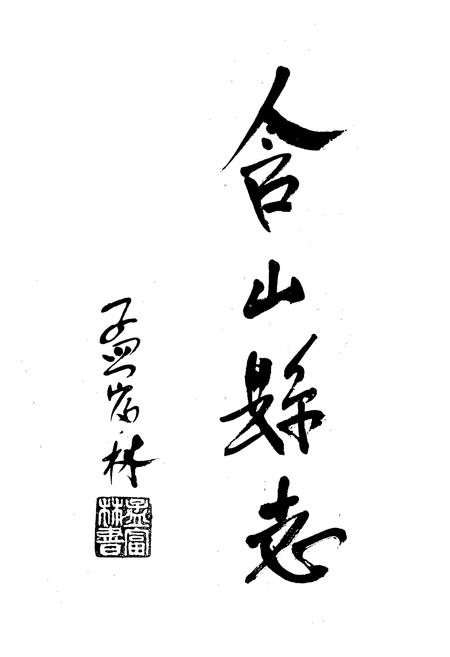 含山縣志
孟富林
孟富
林書